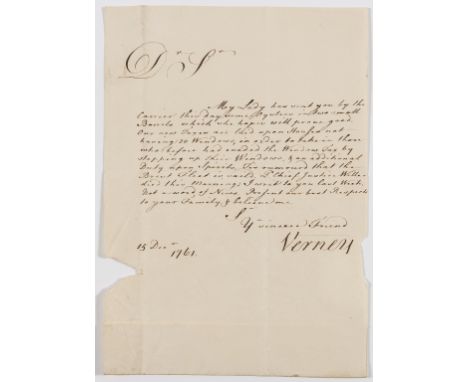 Dr Sr
My Lady has sent you by the
Carrier this day some in two small
Barrels which she hopes will prove good.
Our new Taxes are laid upon Houses not
having 20 Windows, in order to take in those
who before had evaded the Window Tax by
stopping up their Windows, & an additional
Duty upon Spirits. Tis rumoured that the
Brest Fleet is sail'd. Ld Chief Justice Willes
died this Morning. I wrote to you last Week.
Not a word of News. Present our best Respects
to your Family, & believe me
Sr
Yr sincere Friend
Verney
15 Decr 1761